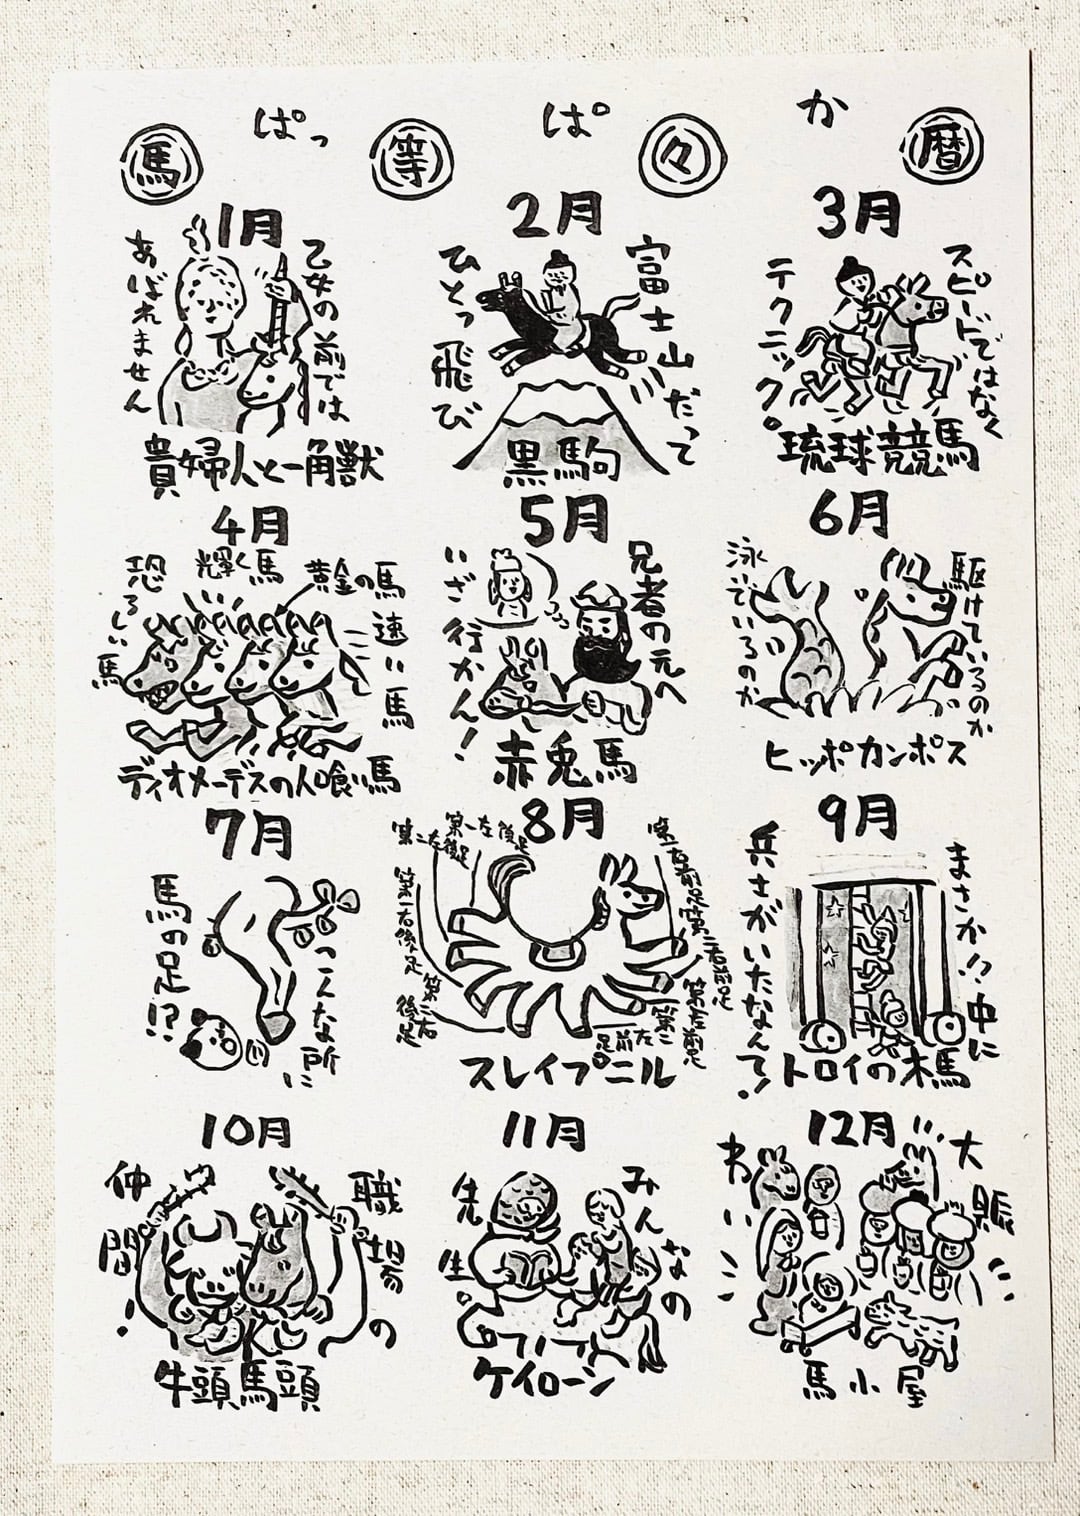 ぱっ ぱ か
馬 等 々 暦
1月
乙女の前では
あばれません
貴婦人と一角獣
2月
富士山だって
ひとっ飛び
黒駒
3月
スピードではなく
テクニック。
琉球競馬
4月
恐ろしい馬
輝く馬
黄金の馬
速い馬
ディオメーデスの人喰い馬
5月
兄者の元へ
いざ行かん!
赤兎馬
6月
駆けているのか
泳いでいるのか
ヒッポカンポス
7月
こんな所に
馬の足!?
8月
第一左後足
第二左後足
第一右後足
第二右後足
第一右前足
第二右前足
第一左前足
第二左前足
スレイプニル
9月
まさか!?中に
兵士がいたなんて!
トロイの木馬
10月
職場の
仲間!
牛頭馬頭
11月
みんなの
先生。
ケイローン
12月
大賑
わい
馬小屋